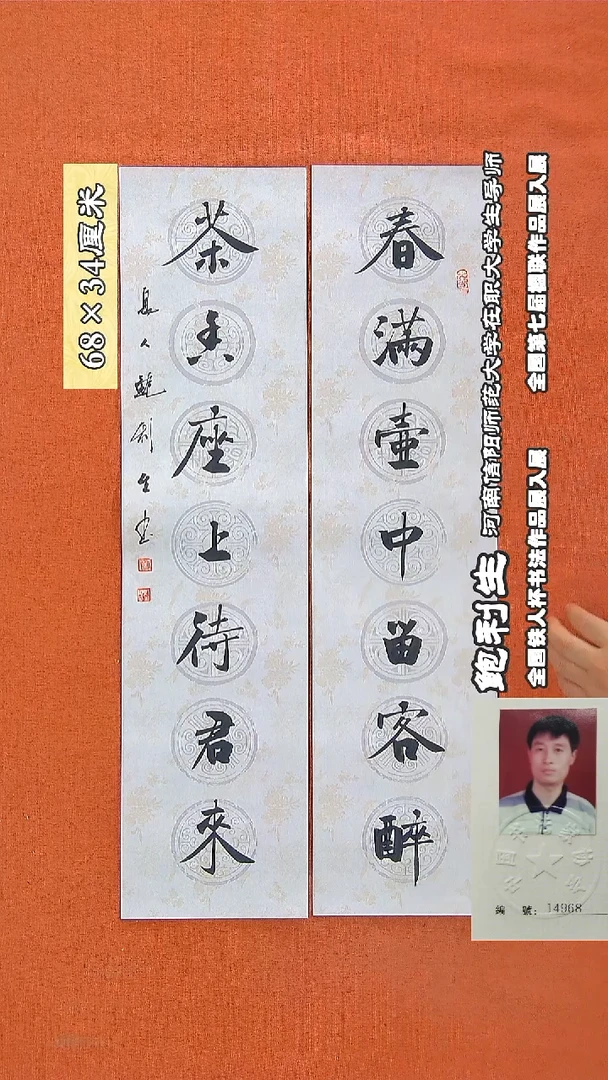 春滿壺中留客醉
茶香座上待君來
息人鮑利生書
68×34厘米
鲍利生 河南信阳师范大学在职大学生导师
全国铁人杯书法作品展入展 全国第七届楹联作品展入展
編 號: 14968